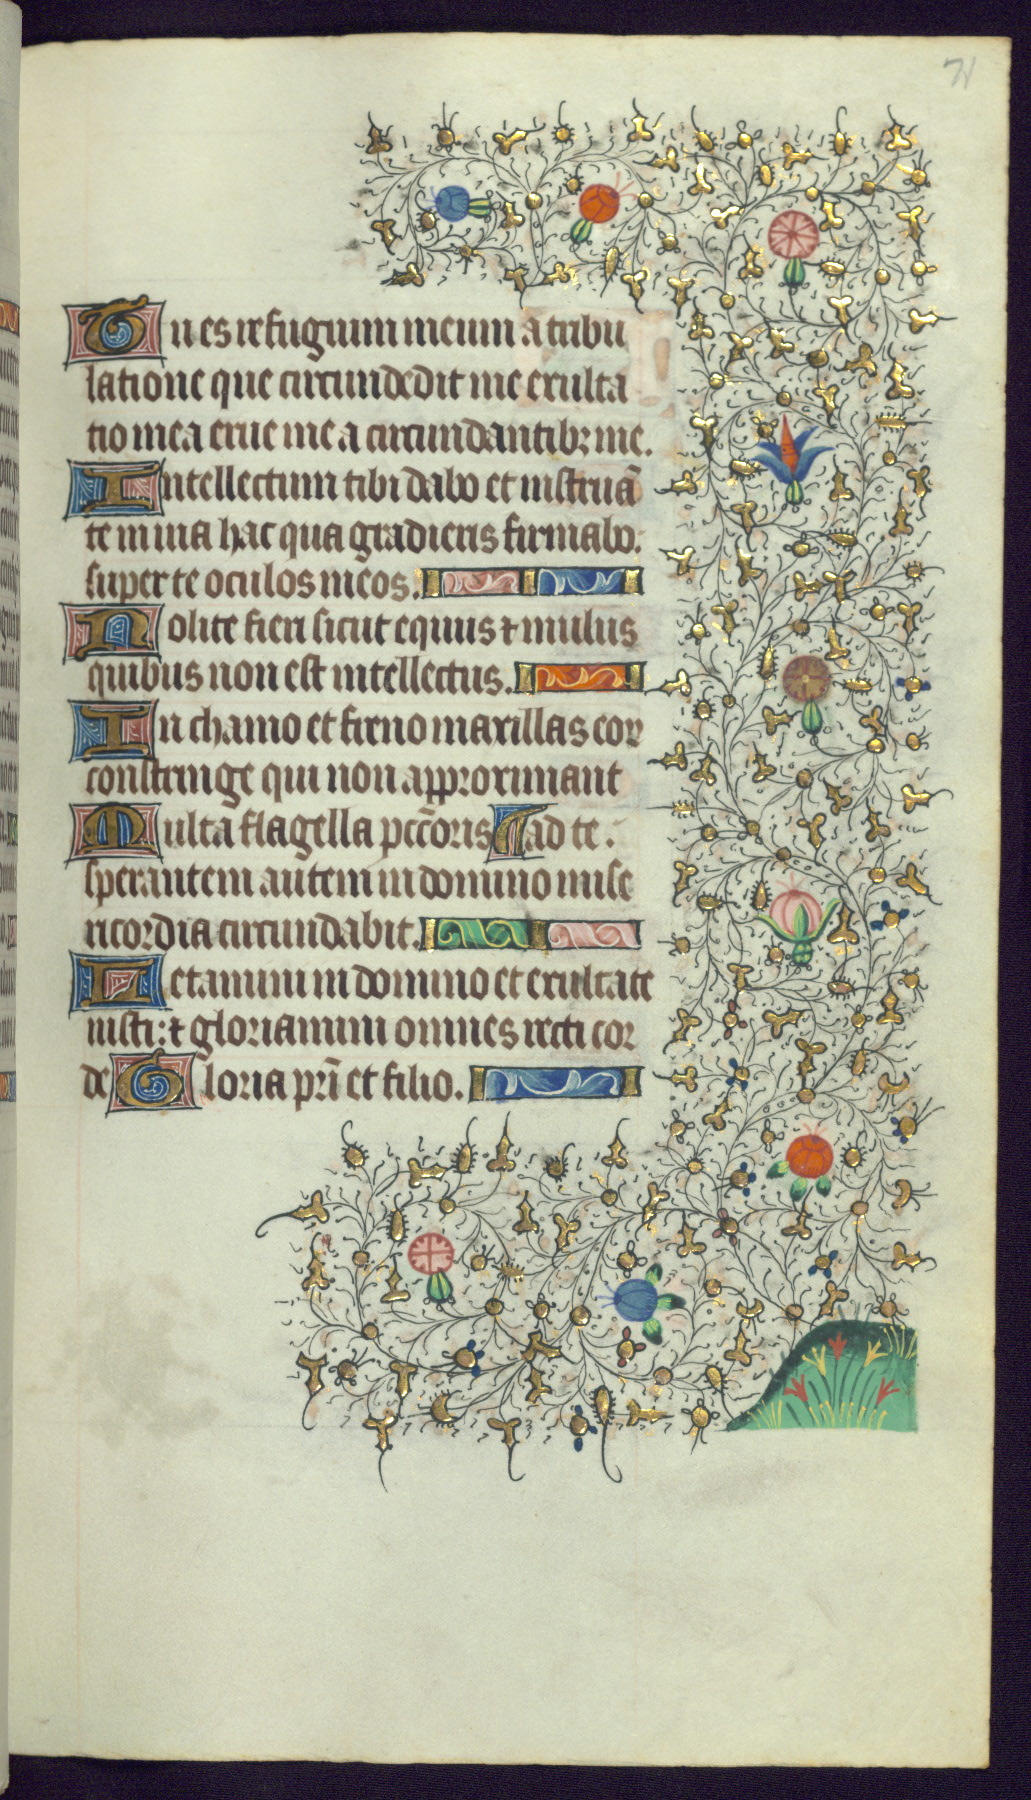 71
Tu es refugium meum a tribu
latione que circundedit me exulta
tio mea erue me a circundantibꝫ me.
Intellectum tibi dabo et instruā
te in uia hac qua gradieris firmabo.
super te oculos meos.
Nolite fieri sicut equus ⁊ mulus
quibus non est intellectus.
In chamo et freno maxillas eoꝝ
constringe qui non approximant
Multa flagella pctōris ad te.
sperantem autem in domino mise
ricordia circundabit.
Letamini in domino et exultate
iusti: ⁊ gloriamini omnes recti cor
de Gloria pr̄i et filio.